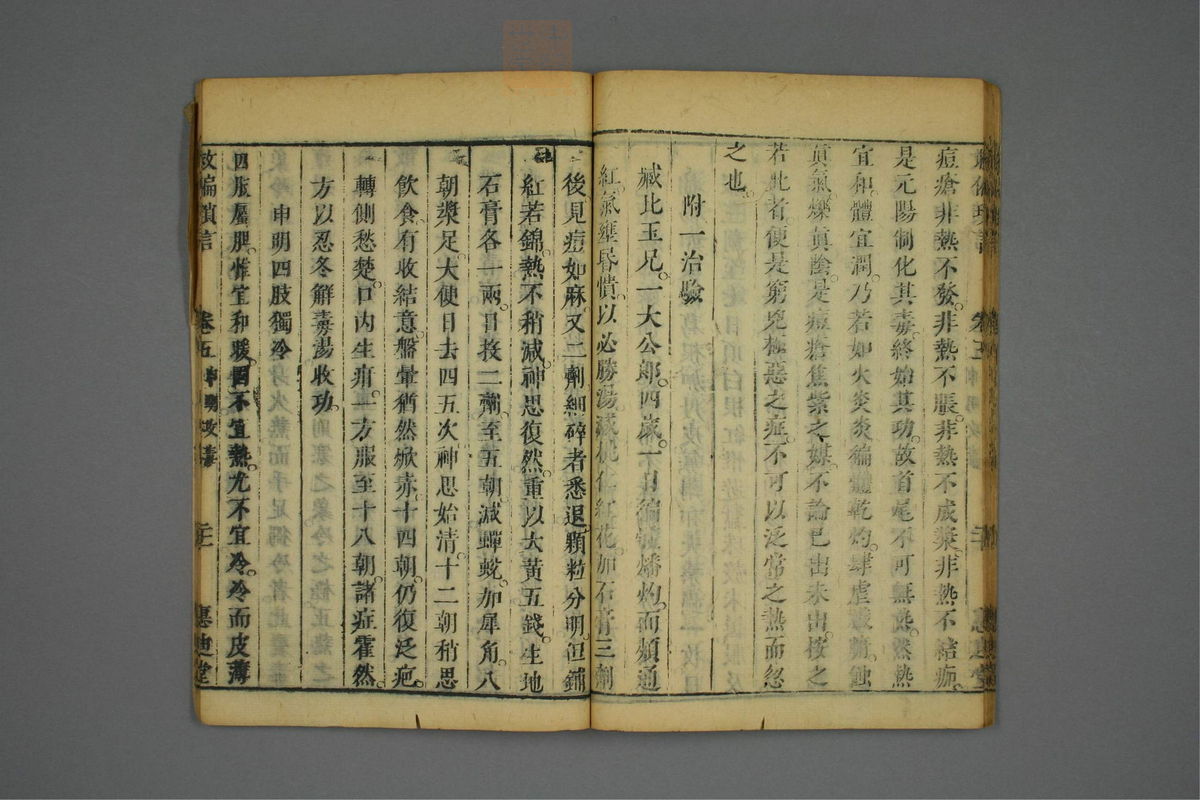 痘瘡非熱不發。非熱不脹。非熱不成漿。非熱不結痂。
是元陽制化其毒。終始其功。故首尾不可無熱。然熱
宜和。體宜潤。乃若如火炎炎。徧體乾灼。肆虐
眞氣。爍眞陰。是痘瘡焦紫之媒。不論已出未出。按之
若此者。便是窮兇極惡之症。不可以泛常之熱而忽
之也。
附一治驗
臧比玉兄。一大公郎。四歲。一日徧 燔灼。而頰通
紅。氣壅昏憒。以必勝湯。減桃仁紅花。加石膏三劑
後見痘如麻。又二劑。細碎者悉退。顆粒分明。但鋪
紅若錦。熱不稍減。神思復然。重以大黃五錢。生地
石膏各一兩。日投二劑。至五朝。減蟬蛻。加犀角。八
朝漿足。大便日去四五次。神思始清。十二朝稍思
飲食。有收結意。盤暈猶然焮赤。十四朝。仍復泛疤。
轉側愁楚。口內生疳。一方服至十八朝。諸症霍然。
方以忍冬解毒湯收功。
申明四肢獨冷
四肢屬脾。惟宜和暖。固不宜熱。尤不宜冷。冷而皮薄
救偏瑣言
卷五
申明救毒
惠迪堂